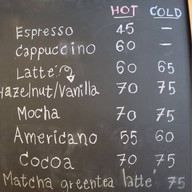 HOT COLD
Espresso 45 -
Cappuccino 60 -
Latte 60 65
Hazelnut/Vanilla 70 75
Mocha 70 75
Americano 55 60
Cocoa 70 75
Matcha greentea latte 75